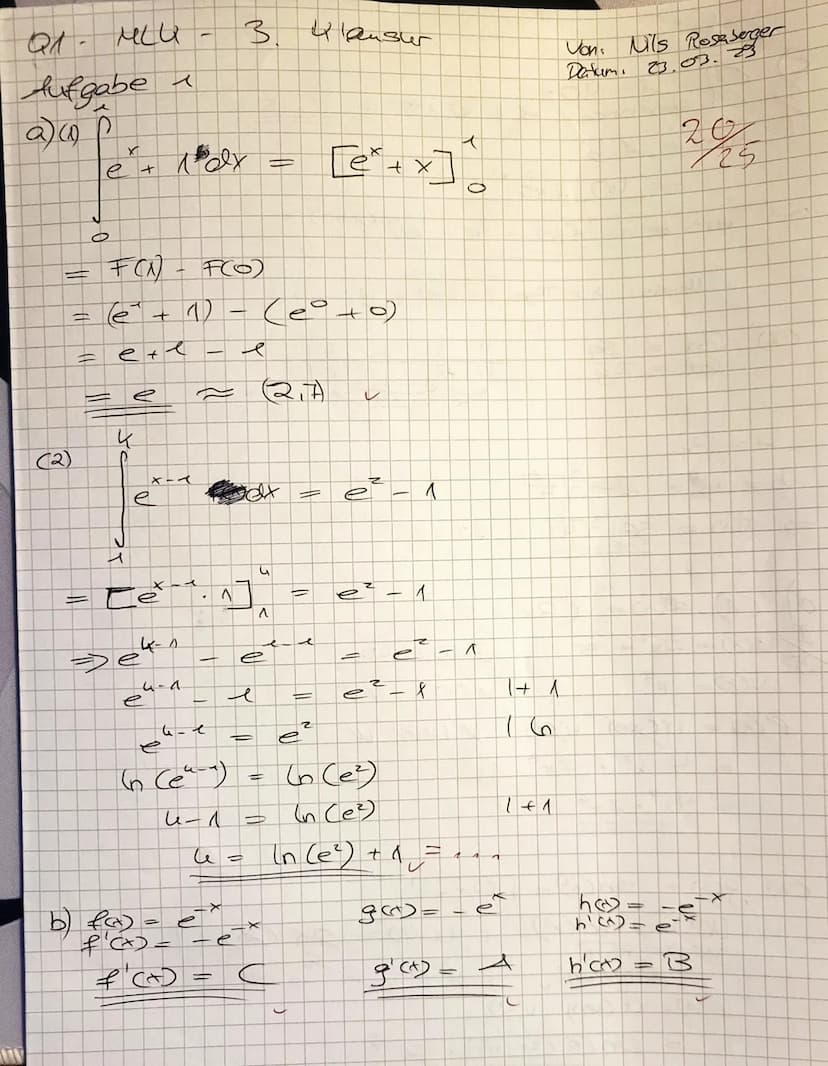 Q1 - MLK - 3. Klausur
Von: Nils Rosaberger
Datum: 23.03.23
Aufgabe 1
20/25
a) (1) ∫₀¹ eˣ + 1 dx = [eˣ + x]₀¹
= F(1) - F(0)
= (e¹ + 1) - (e⁰ + 0)
= e + 1 - 1
= e ≈ (2,7) ✓
(2) ∫₁ᵏ eˣ⁻¹ dx = e² - 1
= [eˣ⁻¹ · 1]₁ᵏ = e² - 1
⇒ eᵏ⁻¹ - e¹⁻¹ = e² - 1
eᵏ⁻¹ - 1 = e² - 1 | + 1
eᵏ⁻¹ = e² | ln
ln (eᵏ⁻¹) = ln (e²)
k - 1 = ln (e²) | + 1
k = ln (e²) + 1 ✓ = ...
b) f(x) = e⁻ˣ g(x) = - eˣ h(x) = -e⁻ˣ
f'(x) = -e⁻ˣ h'(x) = e⁻ˣ
f'(x) = C g'(x) = A h'(x) = B
✓ ✓ ✓